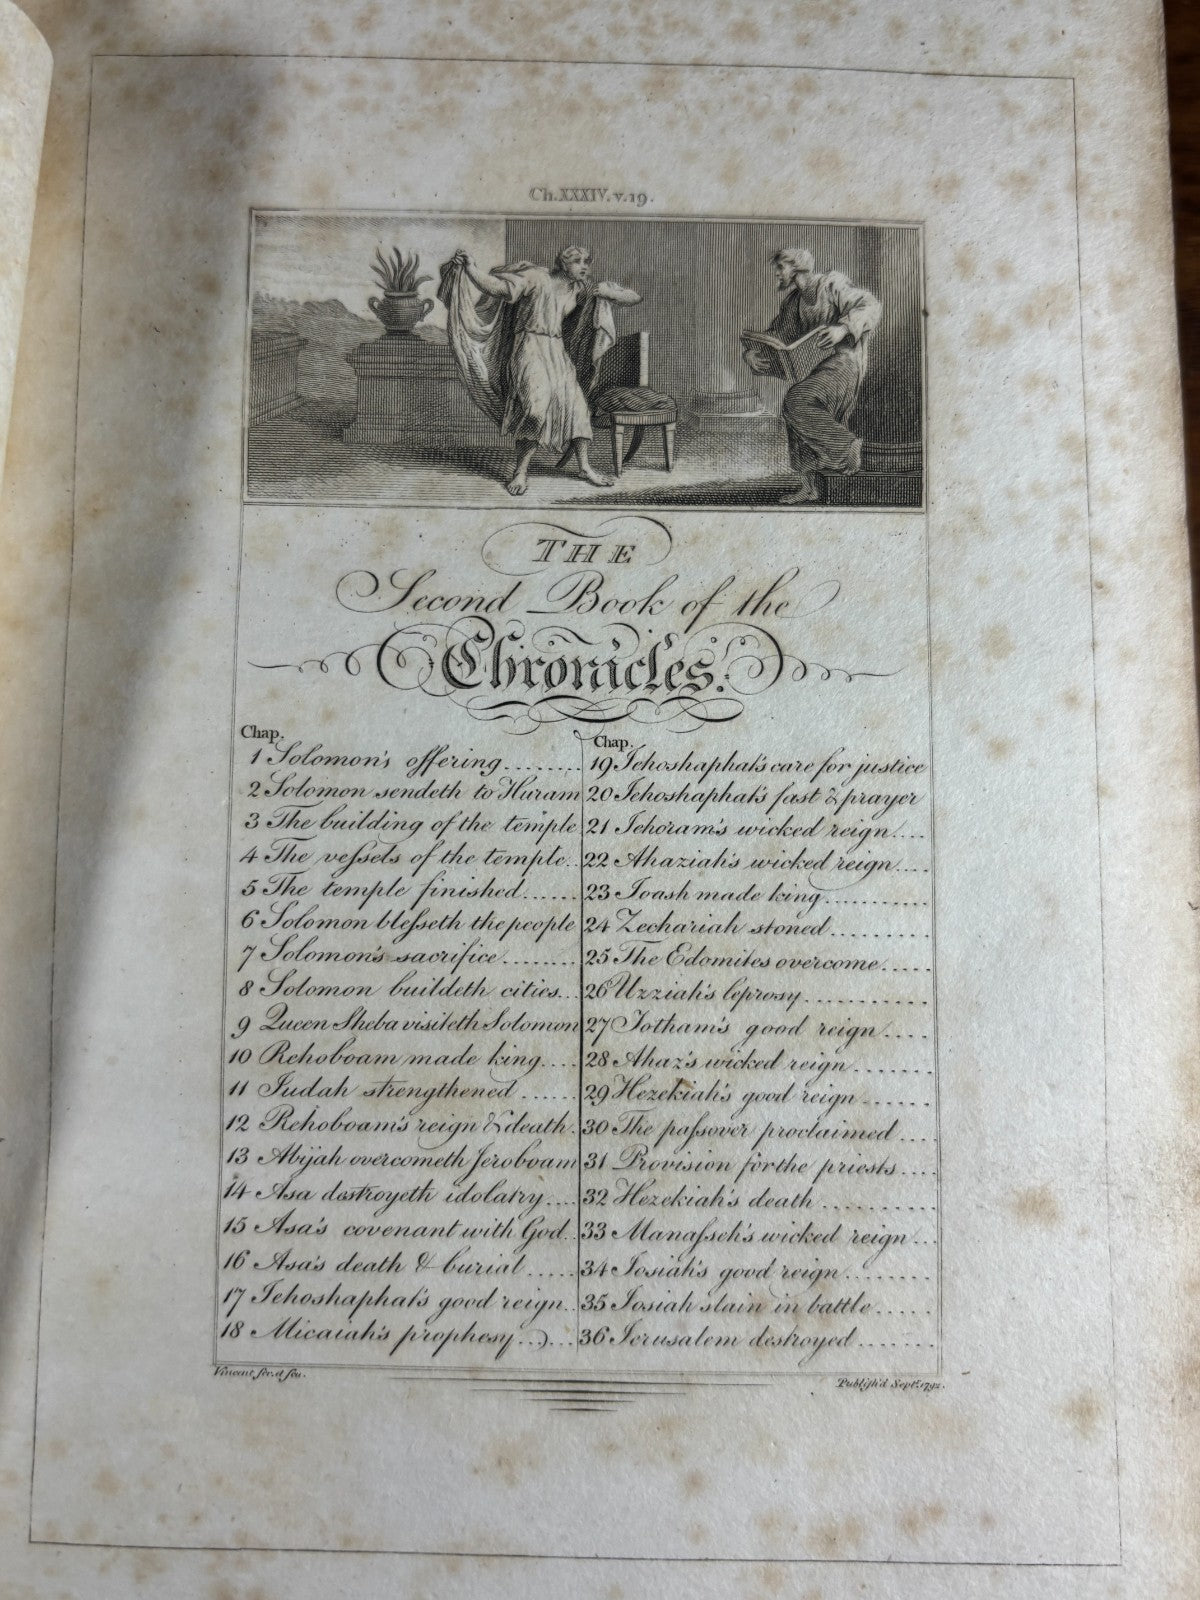 Ch.XXXIV.v.19.
THE
Second Book of the
Chronicles.
Chap.
1 Solomon's offering........
2 Solomon sendeth to Huram
3 The building of the temple
4 The veſsels of the temple..
5 The temple finished......
6 Solomon bleſseth the people
7 Solomon's sacrifice........
8 Solomon buildeth cities...
9 Queen Sheba visiteth Solomon
10 Rehoboam made king....
11 Iudah strengthened......
12 Rehoboam's reign & death.
13 Abijah overcometh Jeroboam
14 Asa destroyeth idolatry....
15 Asa's covenant with God..
16 Asa's death & burial.....
17 Iehoshaphat's good reign..
18 Micaiah's prophesy......
Chap.
19 Iehoshaphat's care for justice
20 Iehoshaphat's fast & prayer
21 Iehoram's wicked reign....
22 Ahaziah's wicked reign....
23 Ioash made king...........
24 Zechariah stoned..........
25 The Edomites overcome.....
26 Uzziah's leprosy...........
27 Jotham's good reign....
28 Ahaz's wicked reign.......
29 Hezekiah's good reign......
30 The paſsover proclaimed....
31 Provision for the priests....
32 Hezekiah's death..........
33 Manaſseh's wicked reign...
34 Iosiah's good reign........
35 Iosiah slain in battle.....
36 Ierusalem destroyed.......
Vincent scr. et scu.
Publiſh'd Septr. 1792.